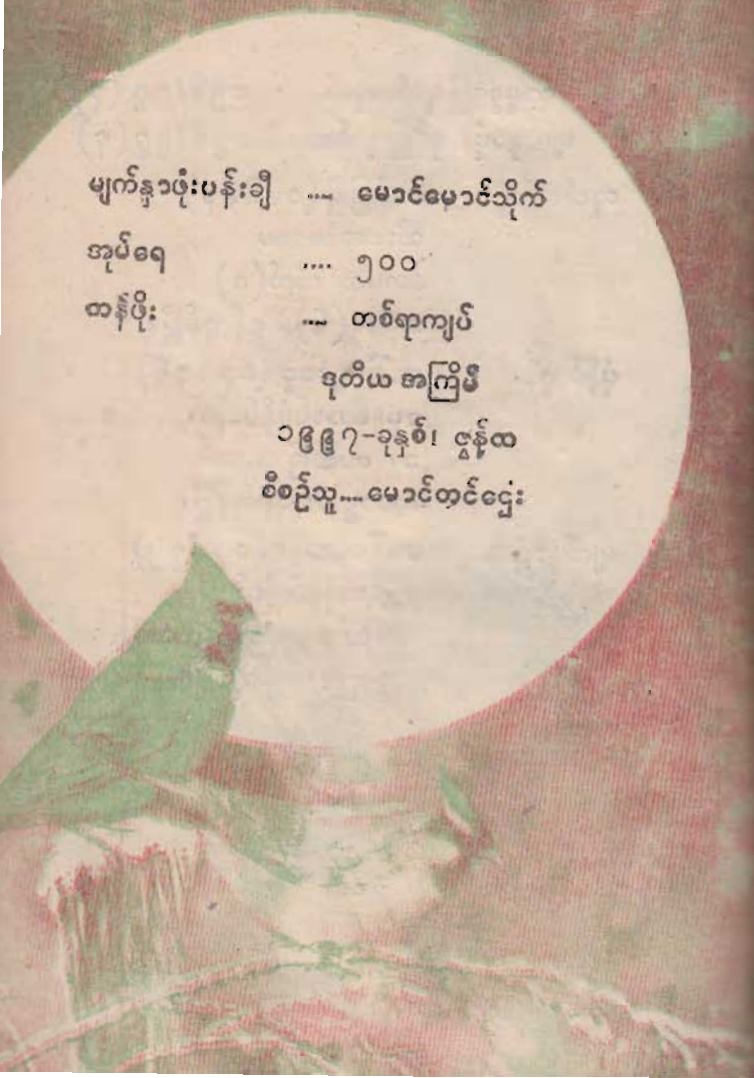 မျက်နှာဖုံးပန်းချီ .... မောင်မောင်သိုက်
အုပ်ရေ .... ၅၀၀
တန်ဖိုး .... တစ်ရာကျပ်
ဒုတိယ အကြိမ်
၁၉၉၇-ခုနှစ်၊ ဇွန်လ
စီစဉ်သူ....မောင်တင်ဌေး